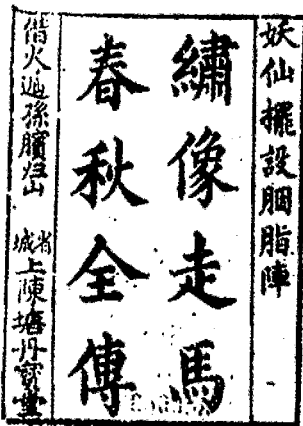 妖仙擺設胭脂陣
繡像走馬
春秋全傳
借火遁孫臏焚山
省城上陳塘丹寶堂